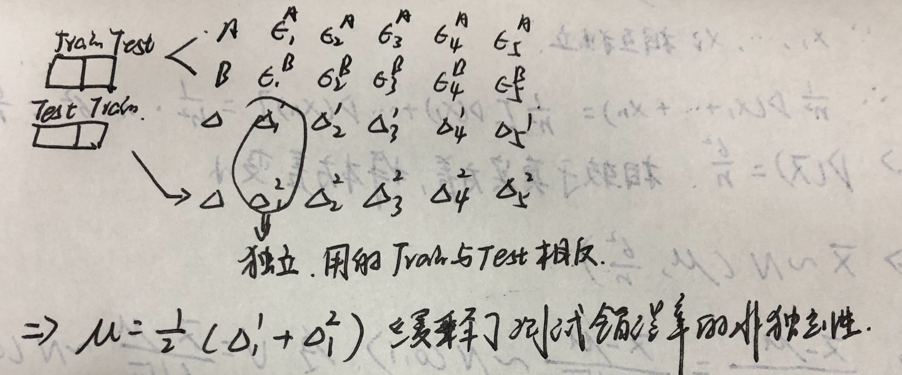 Train Test
A ϵ₁ᴬ ϵ₂ᴬ ϵ₃ᴬ ϵ₄ᴬ ϵ₅ᴬ
B ϵ₁ᴮ ϵ₂ᴮ ϵ₃ᴮ ϵ₄ᴮ ϵ₅ᴮ
Test Train
Δ Δ₁ Δ₂¹ Δ₃¹ Δ₄¹ Δ₅¹
Δ Δ₁² Δ₂² Δ₃² Δ₄² Δ₅²
独立.用的Train与Test相反.
=> μ=½(Δ₁¹+Δ₁²) 缓释了测试错误率的非独立性.